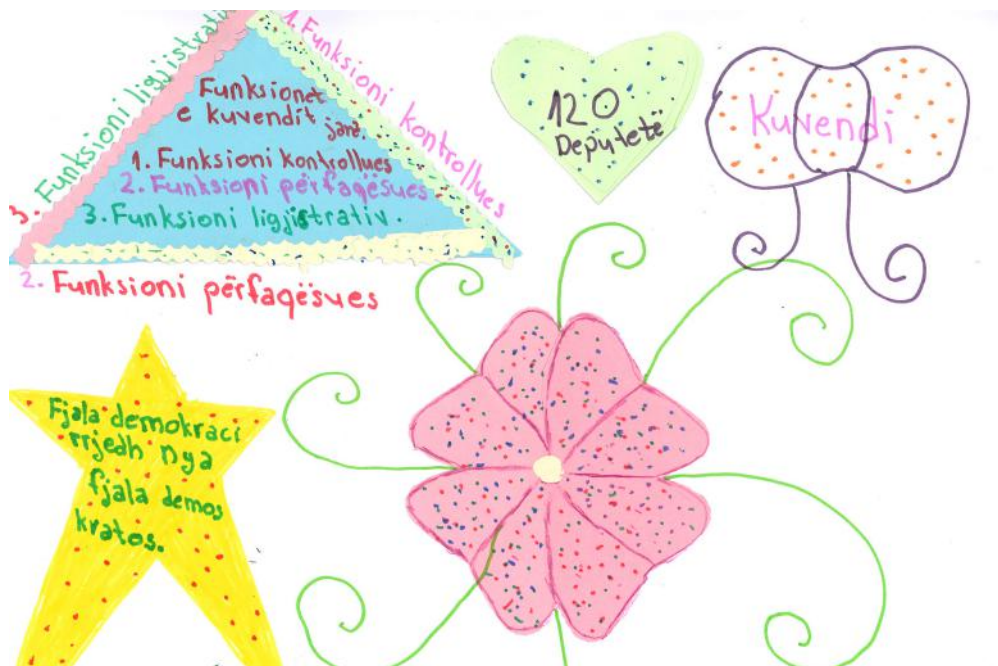 3. Funksioni ligjistrativ
1. Funksioni kontrollues
Funksionet
e kuvendit janë
1. Funksioni kontrollues
2. Funksioni përfaqësues
3. Funksioni ligjistrativ.
2. Funksioni përfaqësues
120
Deputetë
Kuvendi
Fjala demokraci
rrjedh nya
fjala demos
kratos.